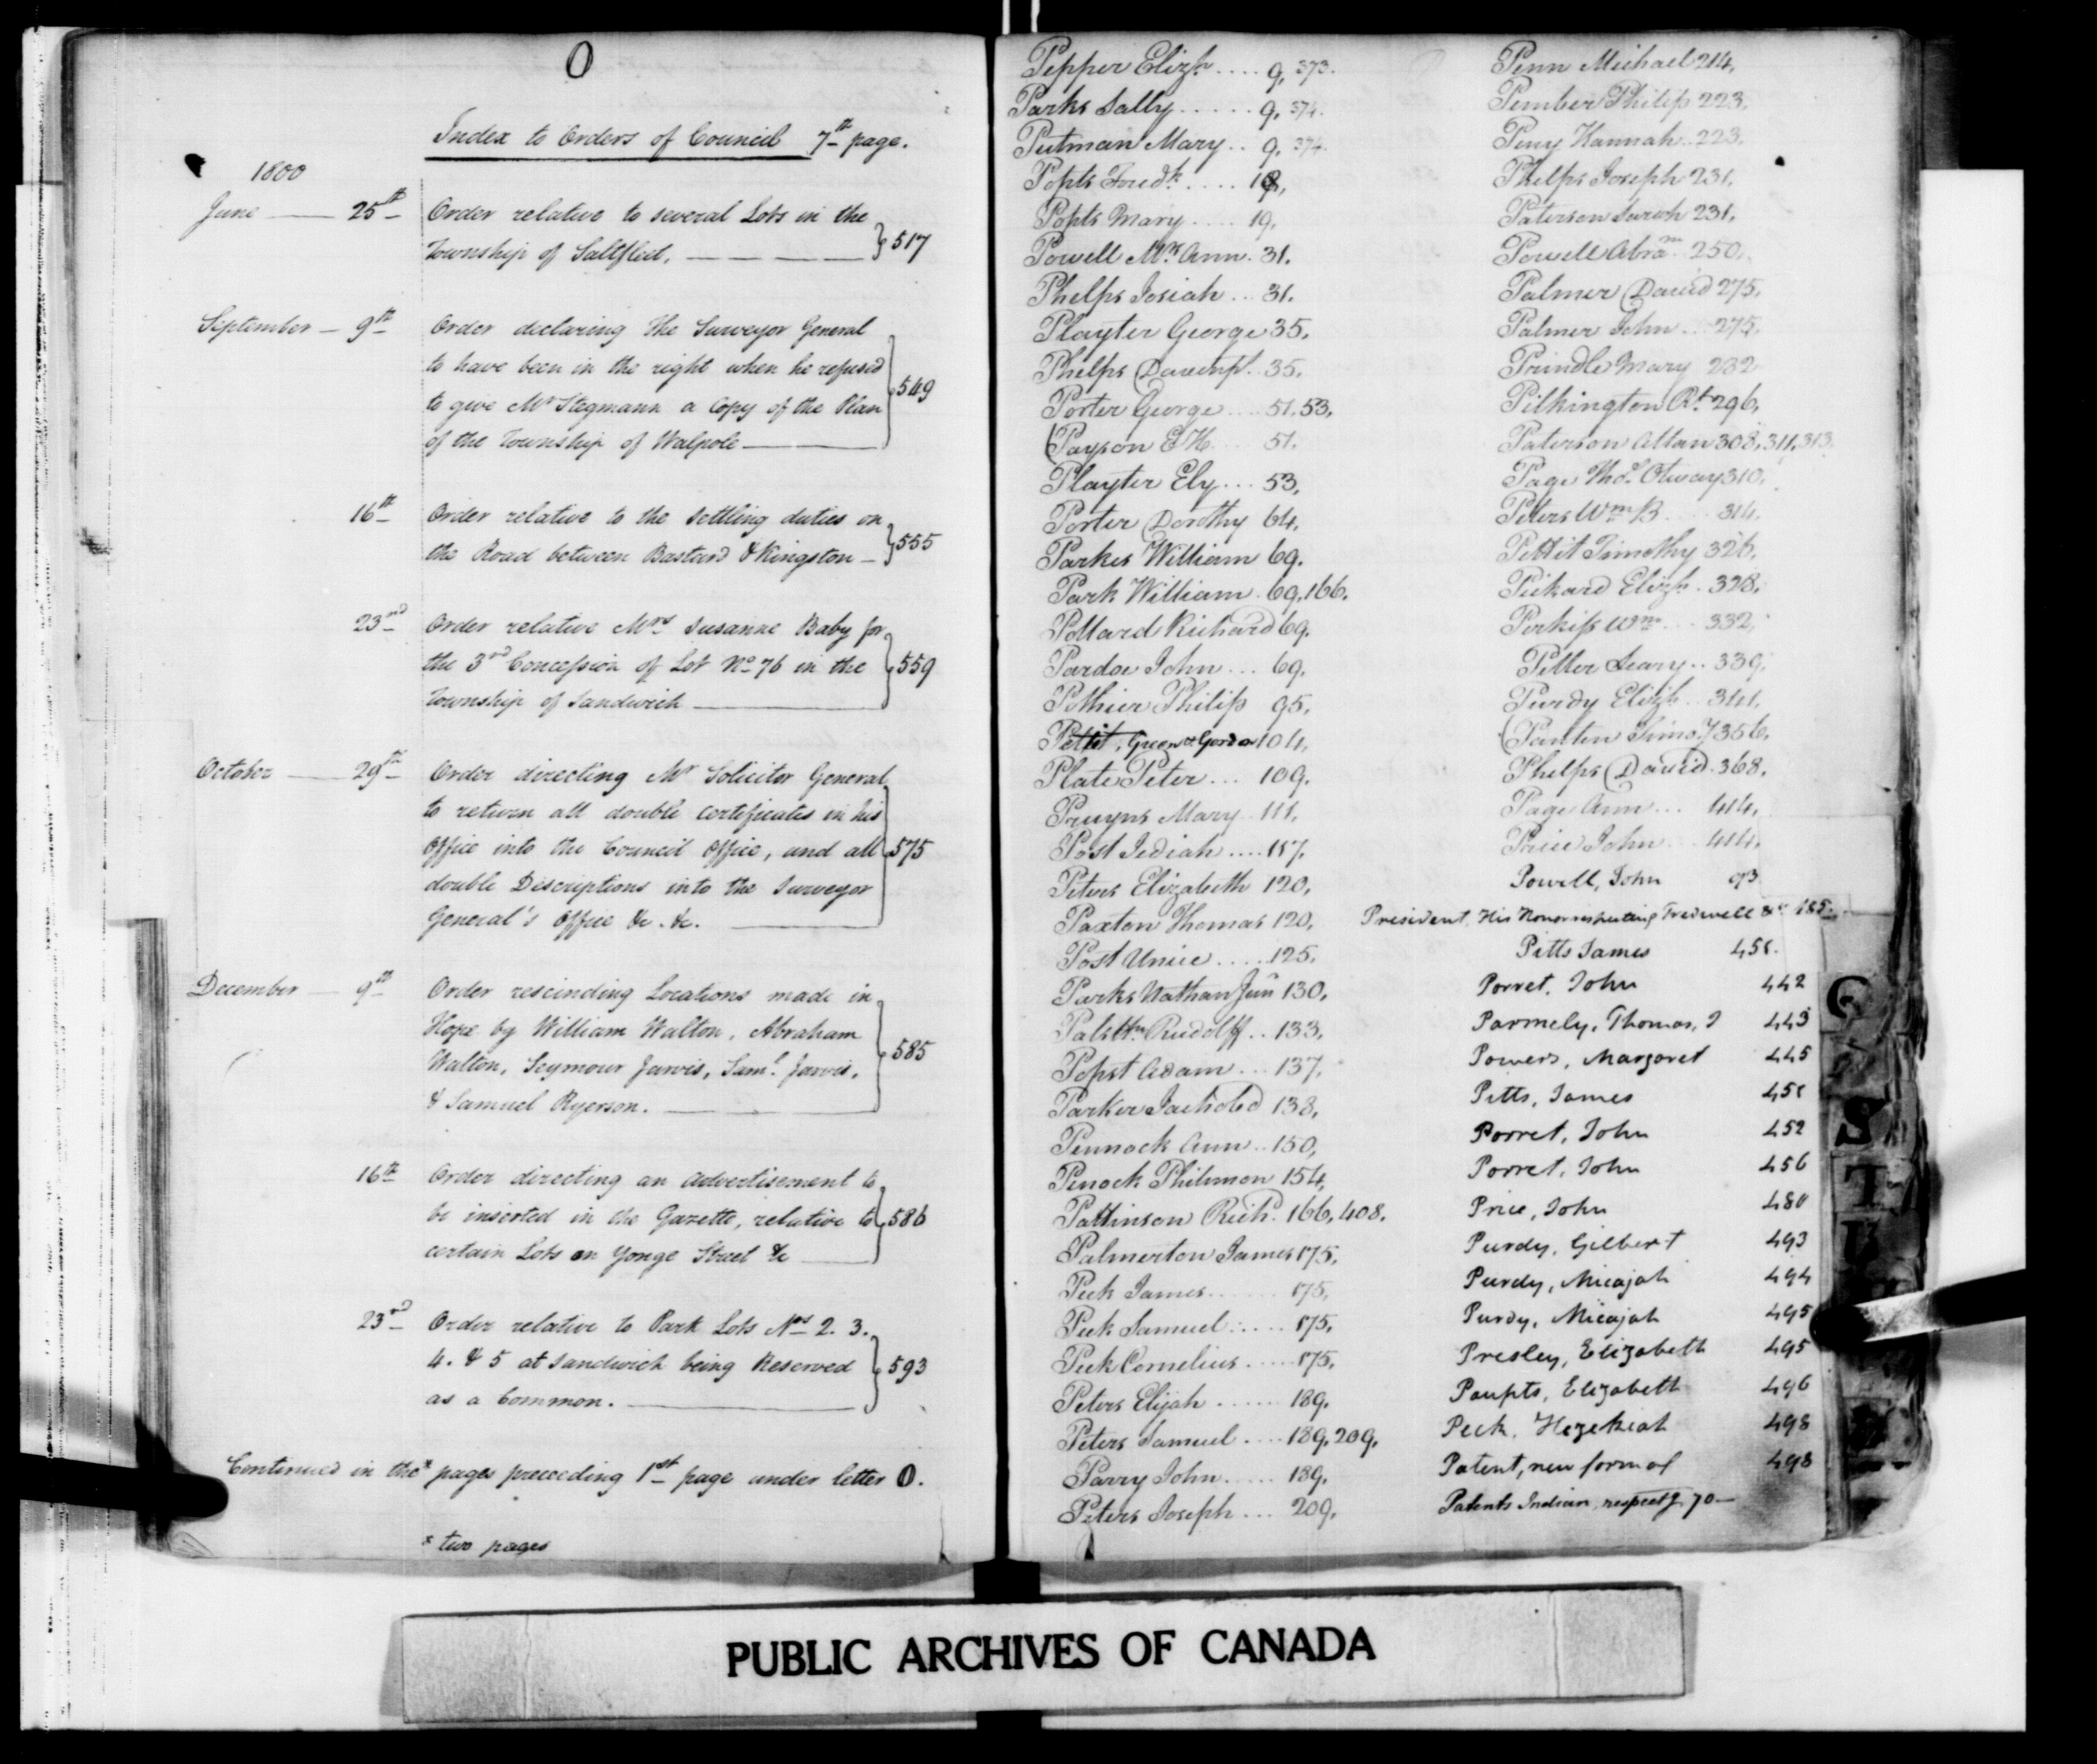 O
Index to Orders of Council 7th page.
1800
June 25th Order relative to several Lots in the
Township of Saltfleet. 517
September 9th Order declaring the Surveyor General
to have been in the right when he refused
to give Mr Stegmann a Copy of the Plan 549
of the Township of Walpole
16th Order relative to the settling duties on
the Road between Bastard & Kingston 555
23rd Order relative Mrs Susanne Baby for
the 3rd Concession of Lot No 76 in the 559
Township of Sandwich
October 29th Order directing Mr Solicitor General
to return all double certificates in his
Office into the Council Office, and all 575
double Discriptions into the Surveyor
General's Office &c. &c.
December 9th Order rescinding Locations made in
Hope by William Walton, Abraham
Walton, Seymour Jarvis, Saml. Jarvis, 585
& Samuel Ryerson.
16th Order directing an advertisement to
be inserted in the Gazette, relative to 586
certain Lots on Yonge Street &c
23rd Order relative to Park Lots Nos 2. 3.
4. & 5 at Sandwich being Reserved 593
as a Common.
Continued in the* pages preceeding 1st page under letter O.
* two pages
Pepper Elizh .... 9, 373.
Parks Sally ..... 9, 374.
Putman Mary .. 9, 374.
Popts Fredk ....
Popts Mary .... 19.
Powell Mrs Ann. 31.
Phelps Josiah ... 31.
Playter George 35.
Phelps Davenpt. 35.
Porter George .... 51, 53,
Payson E H. 51.
Playter Ely ... 53,
Porter Dorothy 64,
Parker William 69.
Park William . 69, 166.
Pollard Richard 69.
Pardoe John ... 69.
Pothier Philip 95.
Pettit, Green & Gordon 104,
Plate Peter ... 109.
Pruyns Mary .. 111,
Post Jediah .... 117.
Peters Elizabeth 120,
Paxton Thomas 120,
Post Unice ..... 125.
Parks Nathan Junr 130,
Rudolff .. 133,
Popst Adam ... 137,
Parker 138,
Pennock Ann .. 150,
Penock Philimon 154,
Pattinson Richd. 166, 408.
Palmerton James 175,
Peek James ...... 175,
Peek Samuel ..... 175,
Peek Cornelius ..... 175,
Peters Elijah ...... 189.
Peters Samuel .... 189, 209,
Parry John ..... 189.
Peters Joseph ... 209,
Penn Michael 214,
Pember Philip 223,
Peny Hannah .. 223,
Phelps Joseph 231,
Paterson Sarah 231,
Powell Abram .. 250,
Palmer David 275,
Palmer John ... 275,
Prindle Mary 232
Pilkington Rt 296,
Paterson Allan 308, 311, 313
Page Thos. Otway 310,
Peters Wm B. .... 314,
Pettit Timothy 326,
Pickard Elizh . 328,
Perkiss Wm ... 332,
Peller Leary .. 339,
Purdy Elizh .. 341,
Timoy 356,
Phelps David . 368,
Page Ann ... 414,
Price John ... 414,
Powell, John 93
President, His Honor respecting Tredwell &c 185.
Pitts James 451.
Porret, John 442
Parmely, Thomas, J 443
Powers, Margaret 445
Pitts, James 451
Porret, John 452
Porret, John 456
Price, John 480
Purdy, Gilbert 493
Purdy, Micajah 494
Purdy, Micajah 495
Presley, Elizabeth 495
Paupts, Elizabeth 496
Peck, Hezekiah 498
Patent, new form of 498
Patents Indian, respectg 70
S
T
PUBLIC ARCHIVES OF CANADA